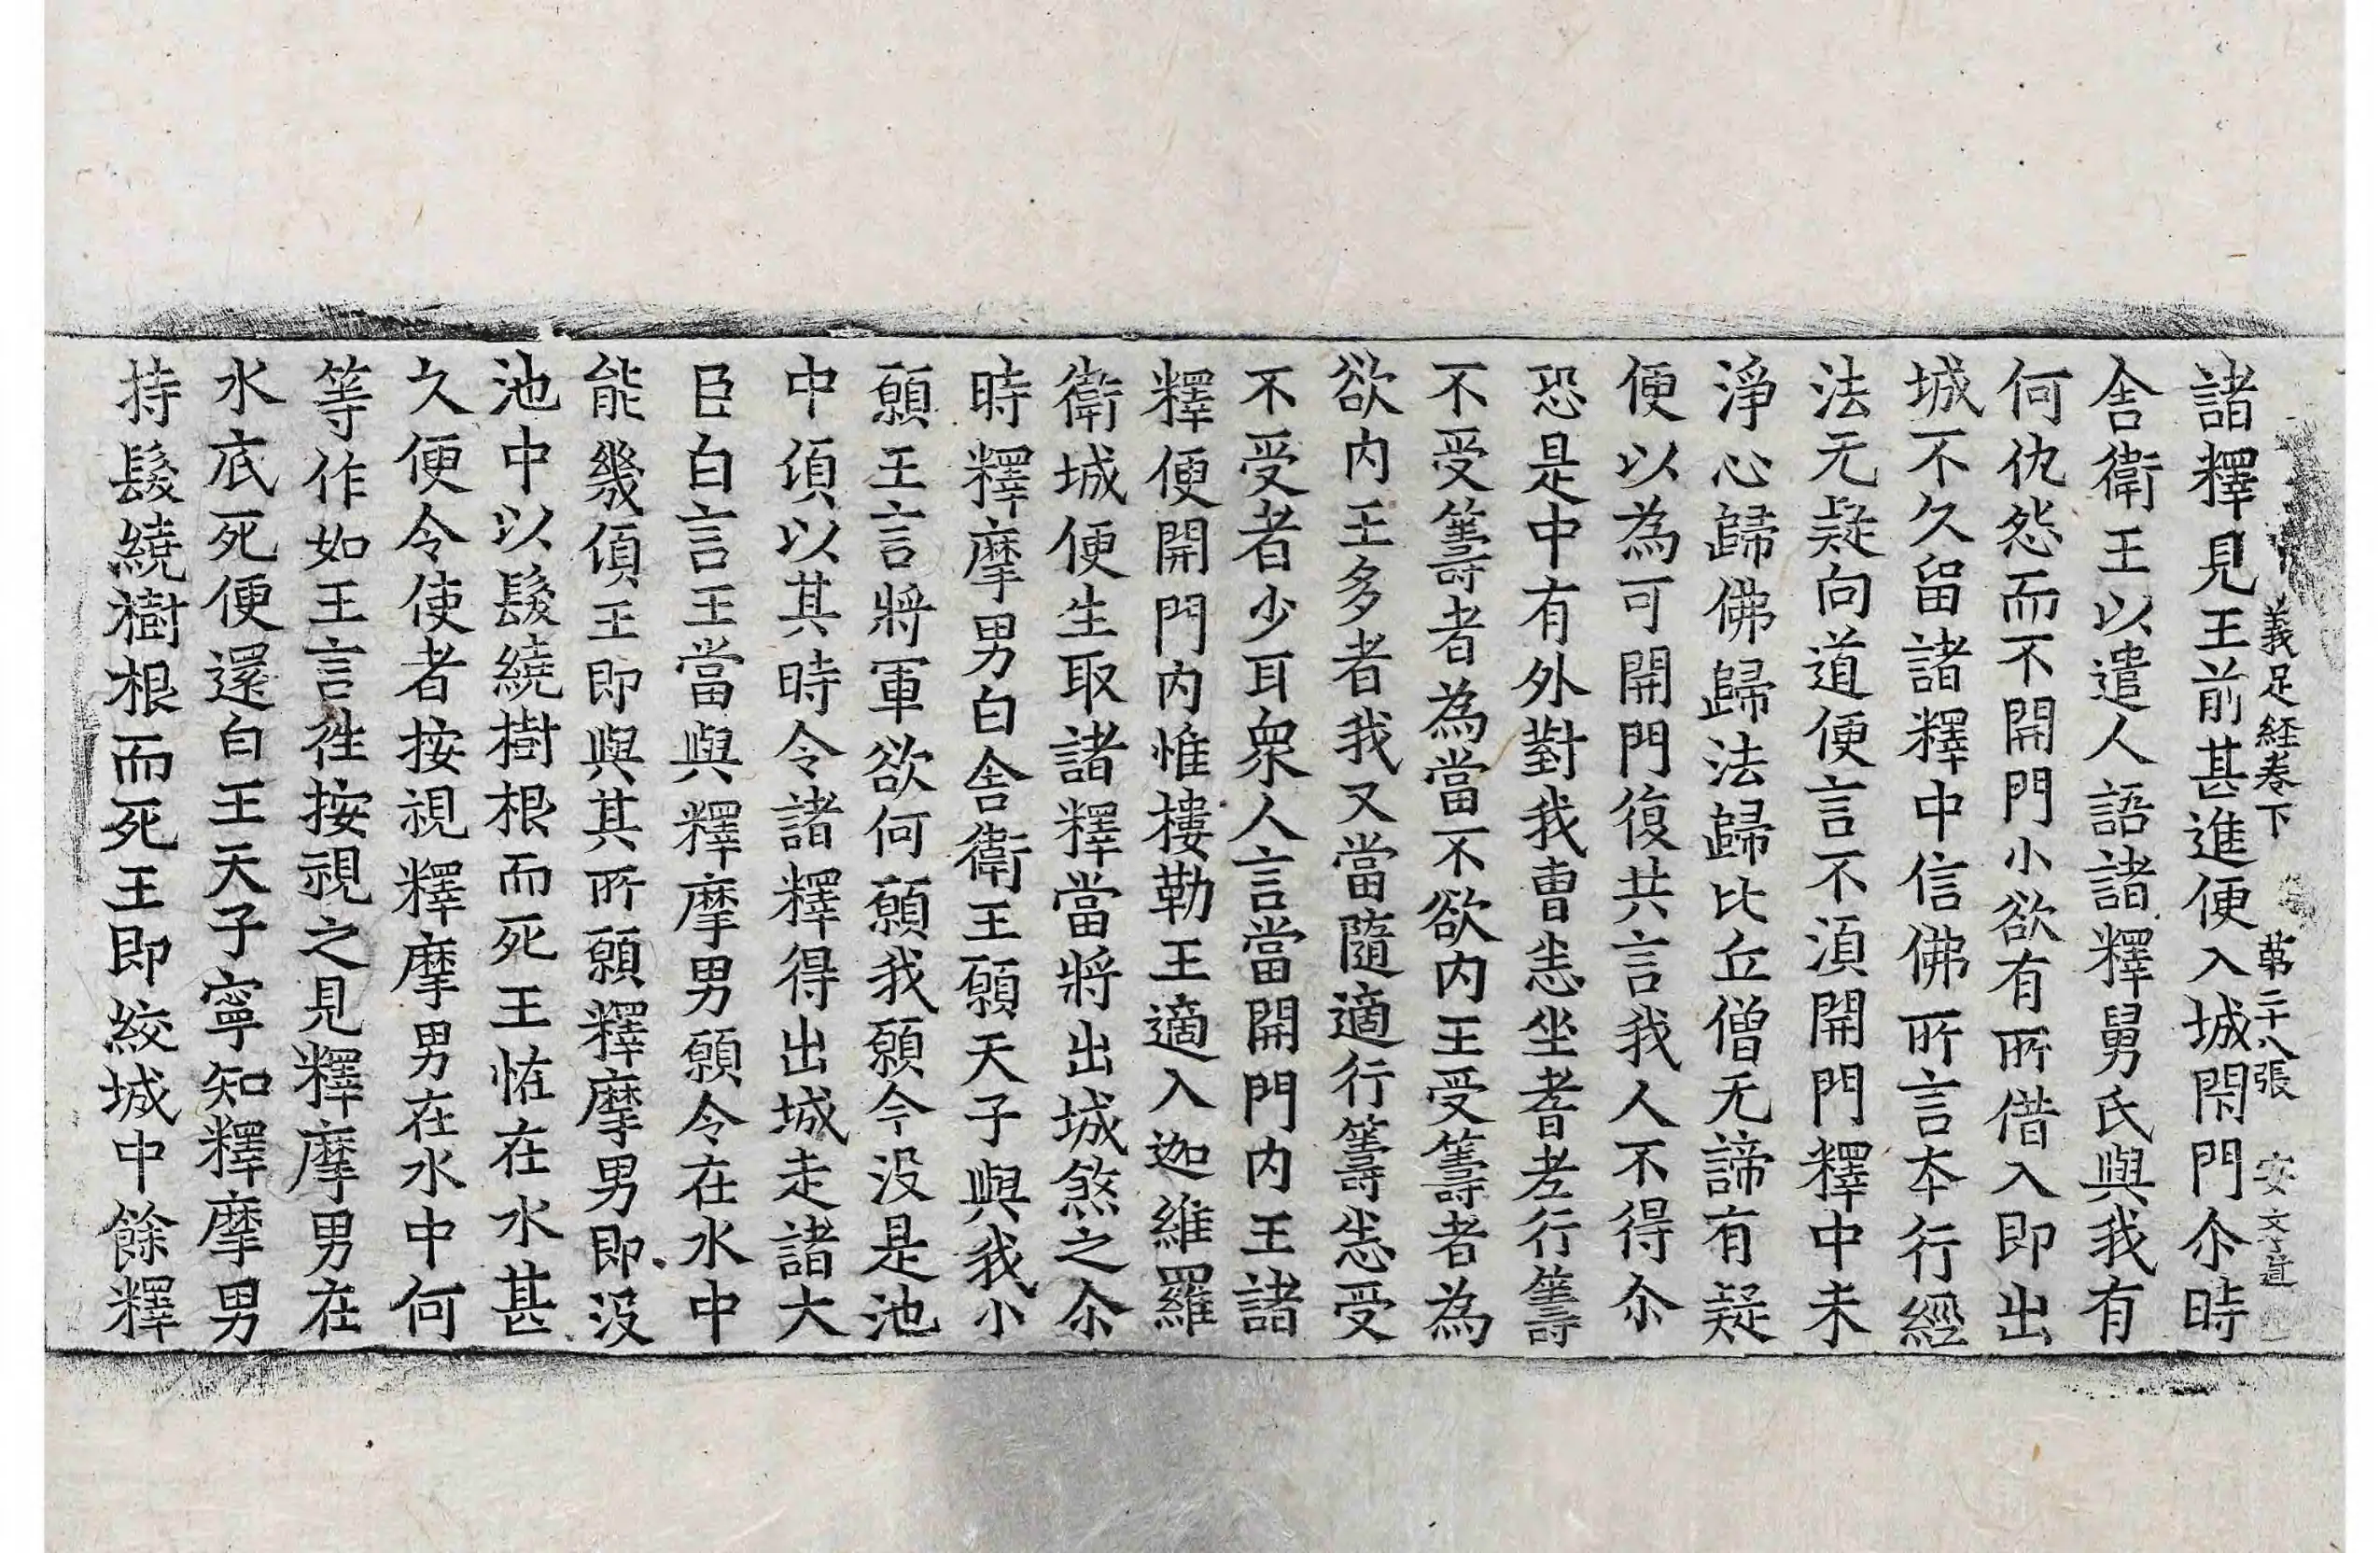 義足経卷下 第二十八張 安 文宣
諸釋見王前甚進便入城閇門尒時
舎衛王以遣人語諸釋舅氏與我有
何仇怨而不開門小欲有所借入即出
城不久留諸釋中信佛所言本行經
法无疑向道便言不湏開門釋中未
淨心歸佛歸法歸比丘僧无諦有疑
便以為可開門復共言我人不得尒
恐是中有外對我曺恙坐耆老行籌
不受籌者為當不欲内王受籌者為
欲内王多者我又當隨適行籌恙受
不受者少耳衆人言當開門内王諸
釋便開門内惟樓勒王適入迦維羅
衛城便生取諸釋當將出城煞之尒
時釋摩男白舎衛王願天子與我小
願王言將軍欲何願我願今没是池
中湏以其時令諸釋得出城走諸大
臣白言王當與釋摩男願令在水中
能幾湏王即與其所願釋摩男即没
池中以髮繞樹根而死王恠在水甚
久便令使者按視釋摩男在水中何
等作如王言徃按視之見釋摩男在
水底死便還白王天子寧知釋摩男
持髮繞樹根而死王即絞城中餘釋